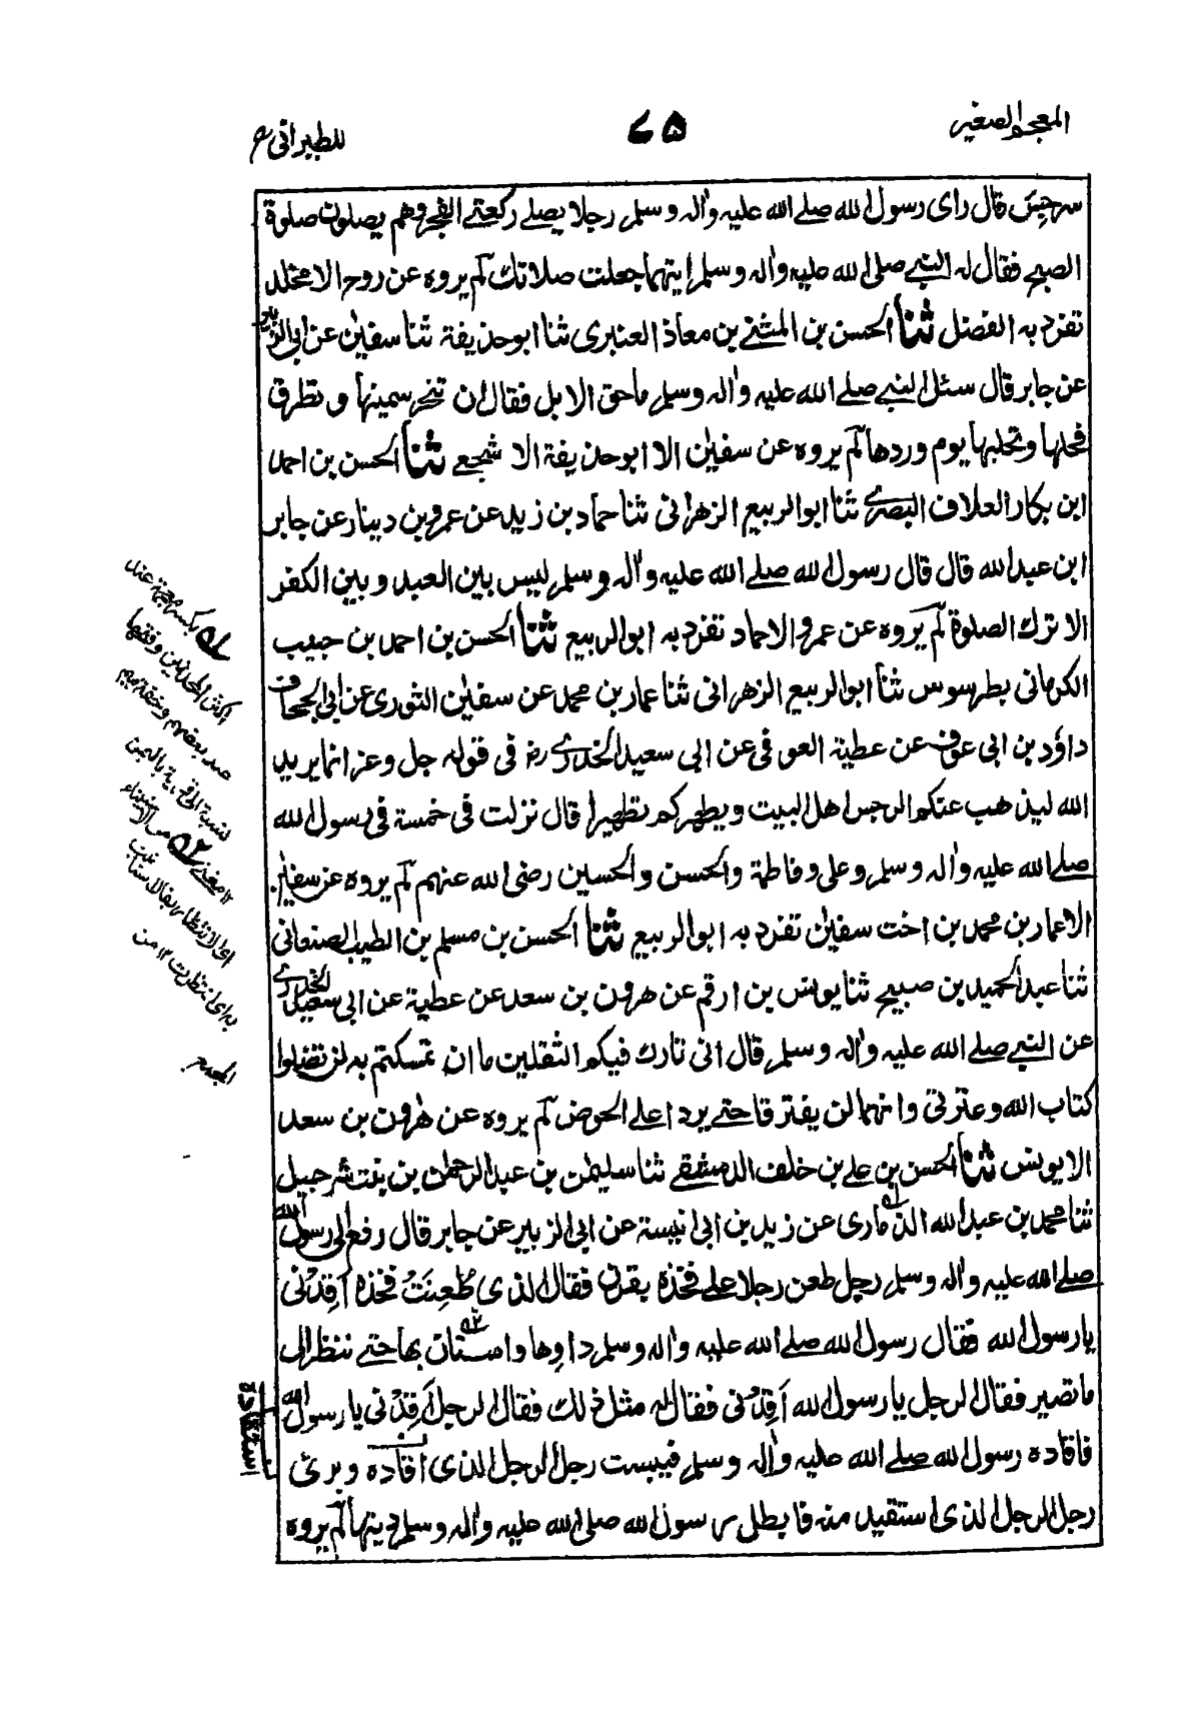 المعجم الصغير
٧٥
للطبرانى
سرجس قال راى رسول الله صلے الله عليه واٰله وسلم رجلا يصلے ركعتے الفجر وهم يصلون صلوة
الصبح فقال له النبے صلى الله عليه واٰله وسلم ايتهما جعلت صلاتك لم يروه عن روح الا مخلد
تفرد به الفضل ثنا الحسن بن المثنے بن معاذ العنبرى ثنا ابو حذيفة ثنا سفيٰن عن ابى الزبير
عن جابر قال سئل النبے صلے الله عليه واٰله وسلم ما حق الابل فقال ان تنحر سمينها و تطرق
فحلها وتحلبها يوم وردها لم يروه عن سفيٰن الا ابو حذيفة الا شجعے ثنا الحسن بن احمد
ابن بكار العلاف البصرے ثنا ابو الربيع الزهرانى ثنا حماد بن زيد عن عمرو بن دينار عن جابر
ابن عبد الله قال قال رسول الله صلے الله عليه واٰله وسلم ليس بين العبد وبين الكفر
الا ترك الصلوة لم يروه عن عمرو الا حماد تفرد به ابو الربيع ثنا الحسن بن احمد بن حبيب
الكرمانى بطرسوس ثنا ابو الربيع الزهرانى ثنا عمار بن محمد عن سفيٰن الثورى عن ابى الجحاف
داؤد بن ابى عوف عن عطية العوفى عن ابى سعيد الخدرے رض فى قوله جل وعز انما يريد
الله ليذهب عنكم الرجس اهل البيت ويطهركم تطهيرا قال نزلت فى خمسة فى رسول الله
صلے الله عليه واٰله وسلم وعلى وفاطمة والحسن والحسين رضى الله عنهم لم يروه عن سفيٰن
الا عمار بن محمد بن اخت سفيٰن تفرد به ابو الربيع ثنا الحسن بن مسلم بن الطيب الصنعانى
ثنا عبد الحميد بن صبيح ثنا يونس بن ارقم عن هرون بن سعد عن عطية عن ابى سعيد الخدرے
عن النبے صلے الله عليه واٰله وسلم قال انى تارك فيكم الثقلين ما ان تمسكتم به لن تضلوا
كتاب الله وعترتى وانهما لن يفترقا حتے يردا على الحوض لم يروه عن هٰرون بن سعد
الا يونس ثنا الحسن بن على بن خلف الدمشقے ثنا سليمٰن بن عبد الرحمٰن بن بنت شرحبيل
ثنا محمد بن عبد الله الذمارى عن زيد بن ابى انيسة عن ابى الزبير عن جابر قال رفع الى رسول الله
صلے الله عليه واٰله وسلم رجل طعن رجلا على فخذه بقرن فقال الذى طُعِنَتْ فخذه اَقِدْنى
يا رسول الله فقال رسول الله صلے الله عليه واٰله وسلم داوِها واستان بها حتے ننظر الى
ما تصير فقال الرجل يا رسول الله اَقِدْنى فقال له مثل ذلك فقال الرجل اَقِدْنى يا رسول الله
فاقاده رسول الله صلے الله عليه واٰله وسلم فيبست رجل الرجل الذى اقاده وبرئ
رجل الرجل الذى استقيد منه فابطل رسول الله صلى الله عليه واٰله وسلم ديتها لم يروه
استقادة
بكسر معجمة عند
اكثر المحدثين وفتحها
عند بعضهم وخفة ميم
نسبة الى قرية باليمن